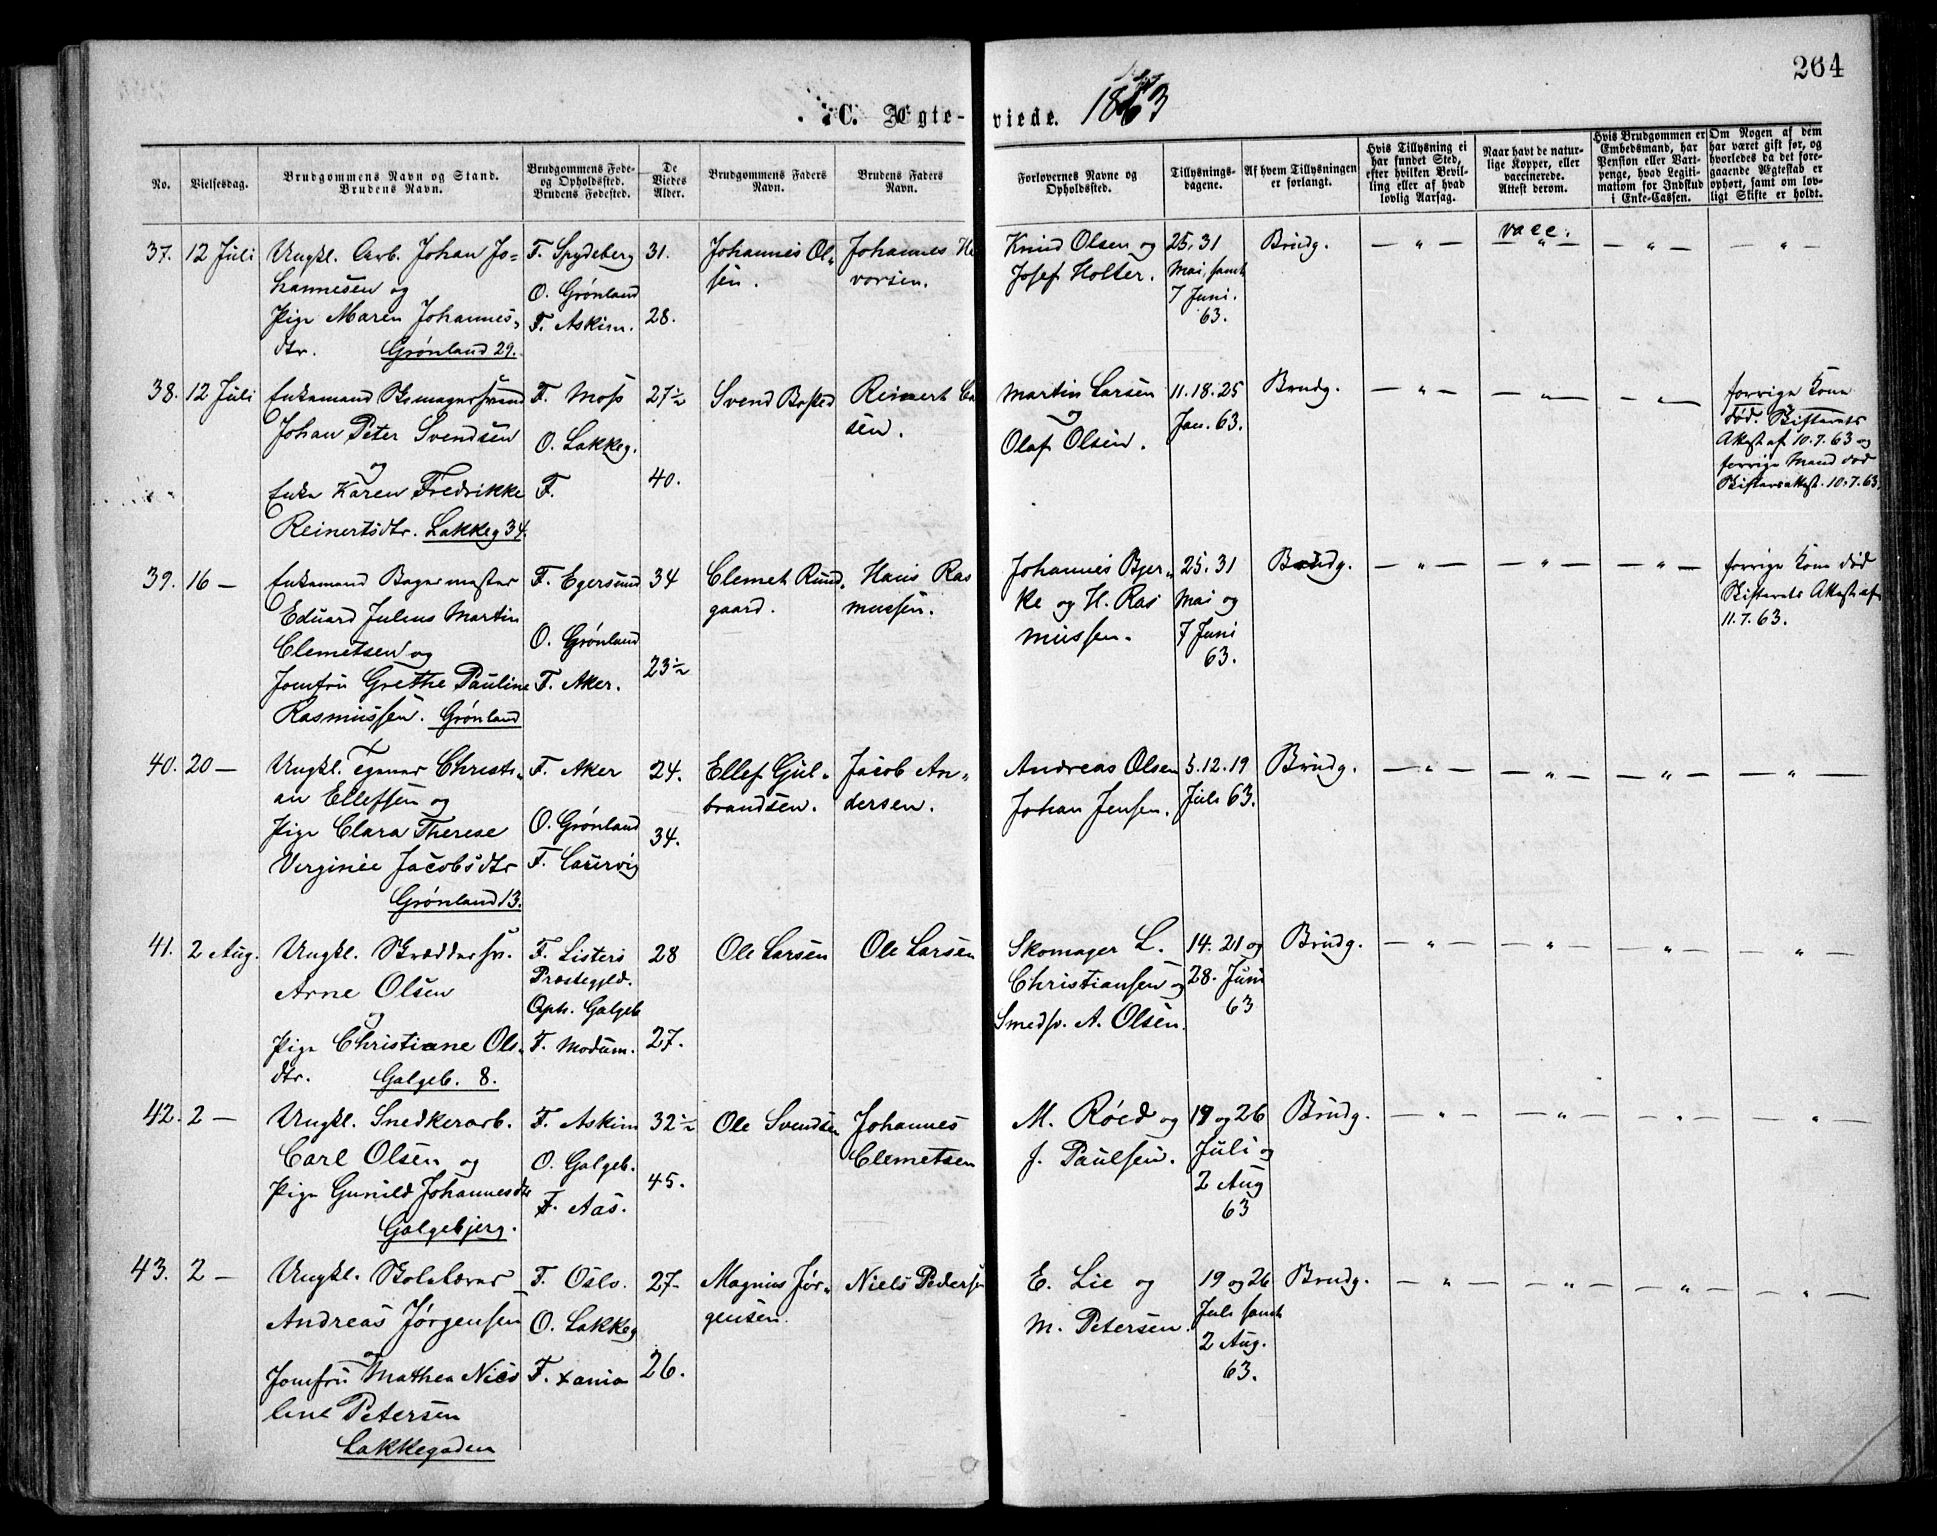 264
C. Ægte-viede. 1863
No.
Vielsesdag.
Brudgommens Navn og Stand.
Brudens Navn.
Brudgommens Føde-
og Opholdssted.
Brudens Fødested.
De
Viedes
Alder.
Brudgommens Faders
Navn.
Brudens Faders
Navn.
Forlovernes Navne og
Opholdssted.
Tillysnings-
dagene.
Af hvem Tillysningen
er forlangt.
Hvis Tillysning ei
har fundet Sted,
efter hvilken Bevil-
ling eller af hvad
lovlig Aarsag.
Naar havt de natur-
lige Kopper, eller
vaccinerede.
Attest derom.
Hvis Brudgommen er
Embedsmand, har
Pension eller Vart-
penge, hvad Legiti-
mation for Indskud
i Enke-Cassen.
Om Nogen af dem
har været gift før, og
hvorledes da det fore-
gaaende Ægteskab er
ophørt, samt om lov-
ligt Skifte er holdt.
37. 12 Juli
Ungkl. Arb. Johan Jo-
hannesen og
Pige Maren Johannes-
dtr. Grønland 29.
F. Spydeberg
O. Grønland
F. Askim.
31.
28.
Johannes Ol-
sen.
Johannes
vorsen.
Knud Olsen og
Josef Holter.
25. 31
Mai, samt
7 Juni.
63.
Brudg.
— " —
vacc.
"
— " —
— " —
38. 12 Juli
Enkemand Skomagersvend
Johan Peter Svendsen
og
Enke Karen Fredrikke
Reinertsdtr. Lakkeg 34.
F. Moss
O. Lakkeg.
F.
27½
40.
Svend
Reinert
sen.
Martin Larsen
og
Olaf Olsen.
11. 18. 25
Jan. 63.
Brudg.
— " —
— " —
— " —
forrige Kone
død. Skifterets
Attest af 10.7.63 og
forrige Mand død
Skifteretsattest. 10.7.63.
39. 16 —
Enkemand Bagermester
Eduard Julius Martin
Clemetsen og
Jomfru Grethe Pauline
Rasmussen. Grønland
F. Egersund
O. Grønland
F. Aker.
34
23½
Clemet Rund-
gaard.
Hans Ras
mussen.
Johannes Bjer-
ke og H. Ras
mussen.
25. 31
Mai og
7 Juni
63.
Brudg.
— " —
— " —
— " —
forrige Kone død
Skifterets Attest af
11.7.63.
40. 20 —
Ungkl. Tegner Christi-
an Ellefsen og
Pige Clara Therese
Verginie Jacobsdtr
Grønland 13.
F. Aker
O. Grønland
F. Laurvig
24.
34.
Ellef Gul-
brandsen.
Jacob An-
dersen.
Andreas Olsen
Johan Jensen.
5. 12. 19
Juli 63.
Brudg.
— " —
— " —
— " —
— " —
41. 2 Aug.
Ungkl. Skræddersv.
Arne Olsen
og
Pige Christiane Ols-
dtr. Galgeb. 8.
F. Listers
Præstegjeld.
Oph. Galgeb
F. Modum.
28
27.
Ole Larsen
Ole Larsen
Skomager L.
Christiansen og
Smedsv. A. Olsen.
14. 21 og
28. Juni
63
Brudg.
— " —
— " —
"
— " —
42. 2 —
Ungkl. Snedkerarb.
Carl Olsen og
Pige Gunild Johannesdtr
Galgebjerg.
F. Askim
O. Galgeb.
F. Aas.
32½
45.
Ole Svendsen
Johannes
Clemetsen
M. Røed og
J. Paulsen.
19 og 26
Juli og
2 Aug
63
Brudg.
— " —
— " —
— " —
— " —
43. 2 —
Ungkl. Skolelærer
Andreas Jørgensen
og
Jomfru Mathea Nico
line Petersen
Lakkegaden
F. Oslo.
O. Lakkeg
F. Xania
27.
26.
Magnus Jør-
gensen.
Niels Pedersen
E. Lie og
M. Petersen.
19 og 26
Juli samt
2 Aug.
63.
Brudg.
— " —
— " —
— " —
— " —